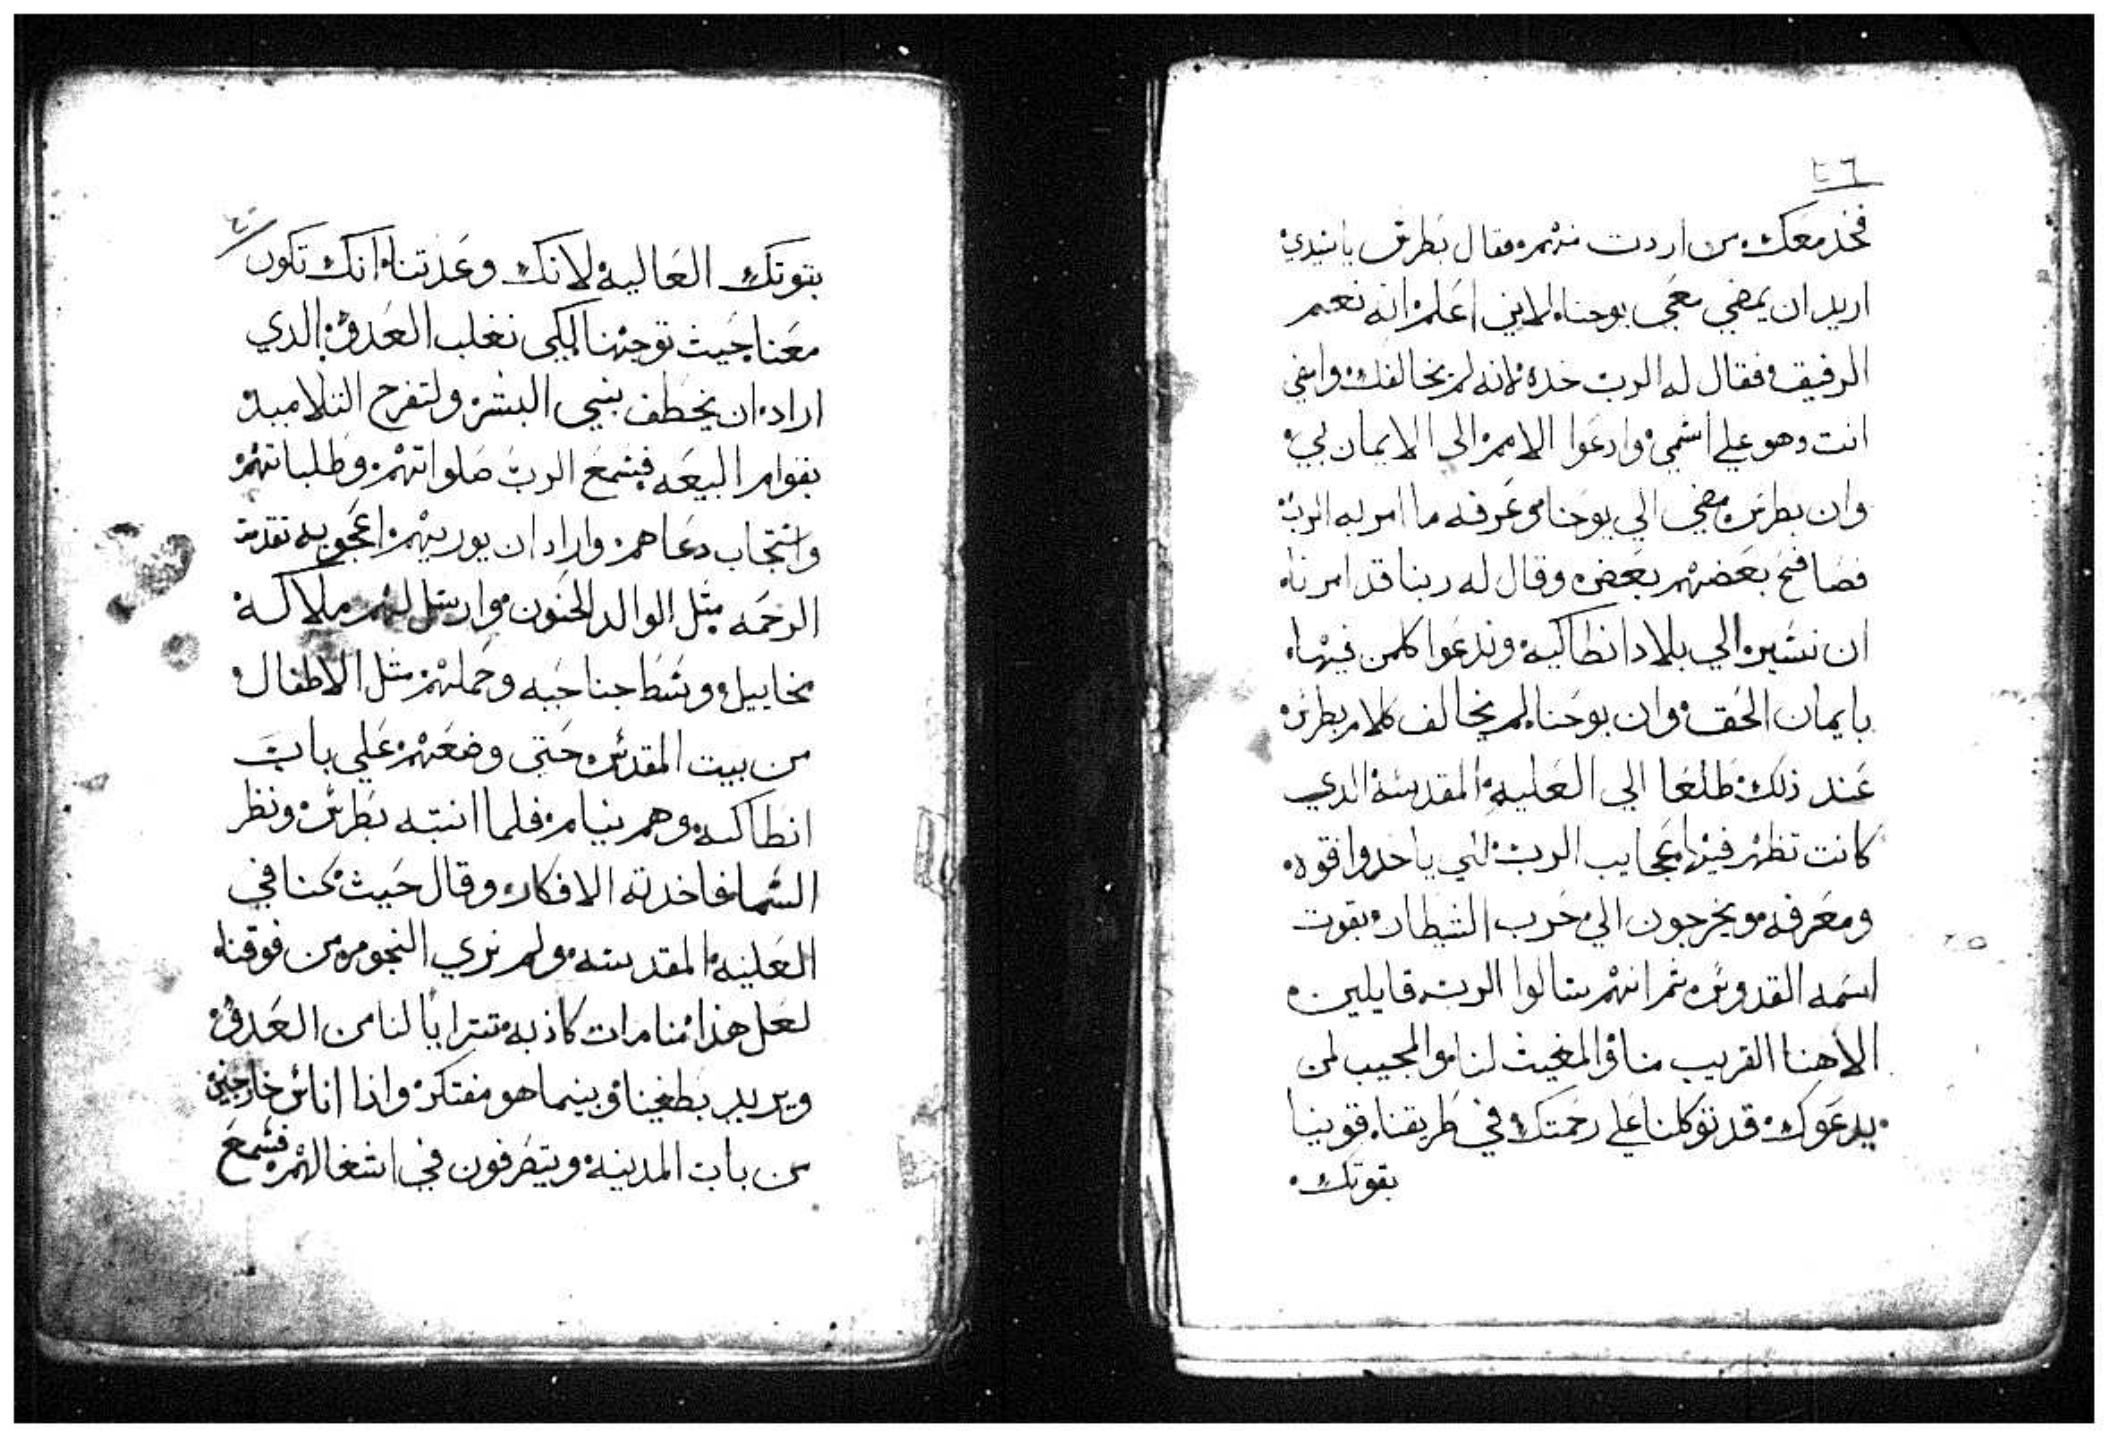 ٤٦
فخذ معك من اردت منهم فقال بطرس يا سيدي
اريد ان يمضي معي يوحنا لاني اعلم انه نعم
الرفيق فقال له الرب خده لانه لم يخالفك وامضي
انت وهو علي اسمي وادعوا الامم الى الايمان بي
وان بطرس مضي الي يوحنا وعرفه ما امر به الرب
فصافح بعضهم بعض وقال له ربنا قد امرنا
ان نسير الي بلاد انطاكيه وندعوا كلمن فيها
بايمان الحق وان يوحنا لم يخالف كلام بطرس
عند ذلك طلعا الي العليه المقدسه الدي
كانت تظهر فيها عجايب الرب لكي ياخدوا قوه
ومعرفه ويخرجون الي حرب الشيطان بقوت
اسمه القدوس ثم انهم سالوا الرب قايلين
الاهنا القريب منا والمغيث لنا والمجيب لمن
يدعوك قد توكلنا علي رحمتك في طريقنا قوينا
بقوتك
بقوتك العاليه لانك وعدتنا انك تكون
معنا حيث توجهنا لكي نغلب العدو الدي
اراد ان يخطف بني البشر ولتفرح التلاميد
بقوام البيعه فسمع الرب صلواتهم وطلباتهم
واستجاب دعاهم واراد ان يوريهم اعجوبه تقدمت
الرحمه مثل الوالد الحنون وارسل لهم ملاكه
مخاييل وبسط جناحيه وحملهم مثل الاطفال
من بيت المقدس حتي وضعهم علي باب
انطاكيه وهم نيام فلما انتبه بطرس ونظر
السما فاخدته الافكار وقال حيث كنا في
العليه المقدسه ولم نري النجوم من فوقنا
لعل هذا منامات كاذبه تترايا لنا من العدو
ويريد يطغينا وبينما هو مفتكر واذا اناس خارجين
من باب المدينه ويتصرفون في اشغالهم فسمع